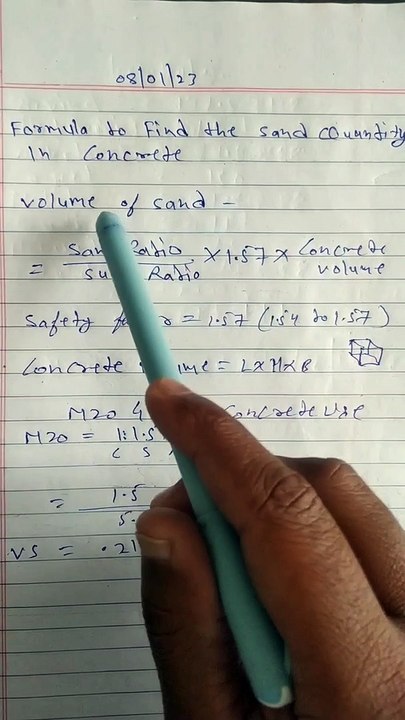 08/01/23
Formula to Find the sand Quantity
In Concrete
Volume of sand -
= Ratio × 1.57 × Concrete volume
Ratio
Safety = 1.57 (1.54 to 1.57)
Concrete = L×H×B
M20 Concrete use
M20 = 1:1.5
C S
= 1.5
5.
VS = .21